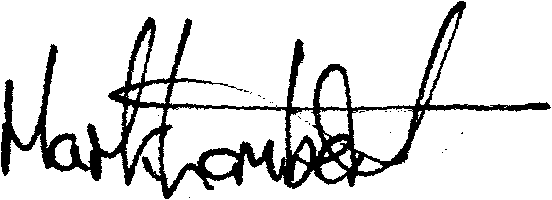 Mark Lambert